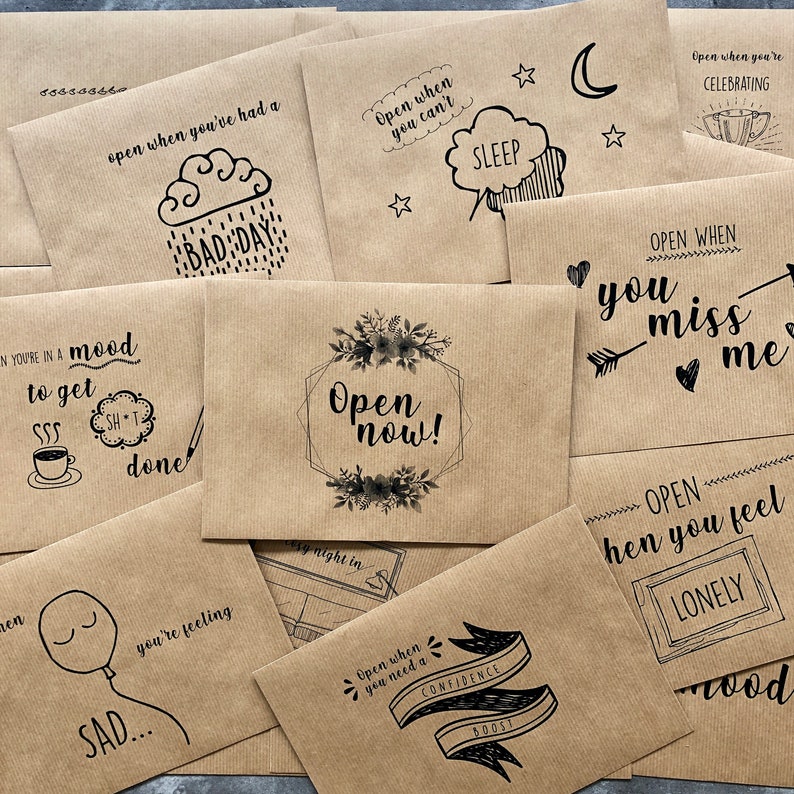 open when you've had a
BAD DAY
Open when
you can't
SLEEP
Open when you're
CELEBRATING
OPEN WHEN
you
miss
me
YOU'RE IN A mood
to get
SH*T
done
Open
now!
OPEN
when you feel
LONELY
cosy night in
you're feeling
SAD...
Open when
you need a
CONFIDENCE
BOOST
mood